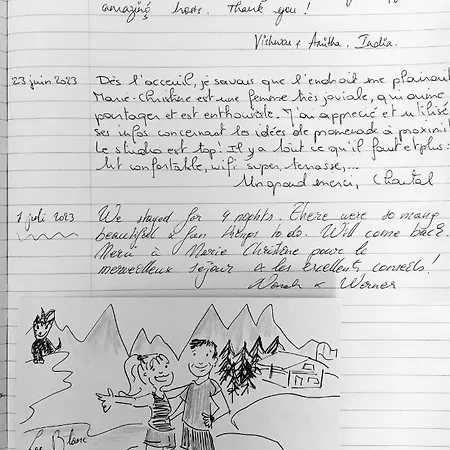 amazing host. Thank you!
Vishwas & Anitha. India.
23 juin 2023
Dès l'acceuil, je savais que l'endroit me plairait
Marie-Christine est une femme très joviale, qui aime
partager et est enthousiste. J'ai apprécié et utilisé
ses infos concernant les idées de promenade à proximit
Le studio est top! Il y a tout ce qu'il faut et plus:
lit confortable, wifi super, terrasse,...
Un grand merci, Chantal
1 juli 2023
We stayed for 4 nights. There were so many
beautiful & fun things to do. Will come back.
Merci à Marie Christine pour le
merveilleux sejour & les excellents conseils!
& Werner